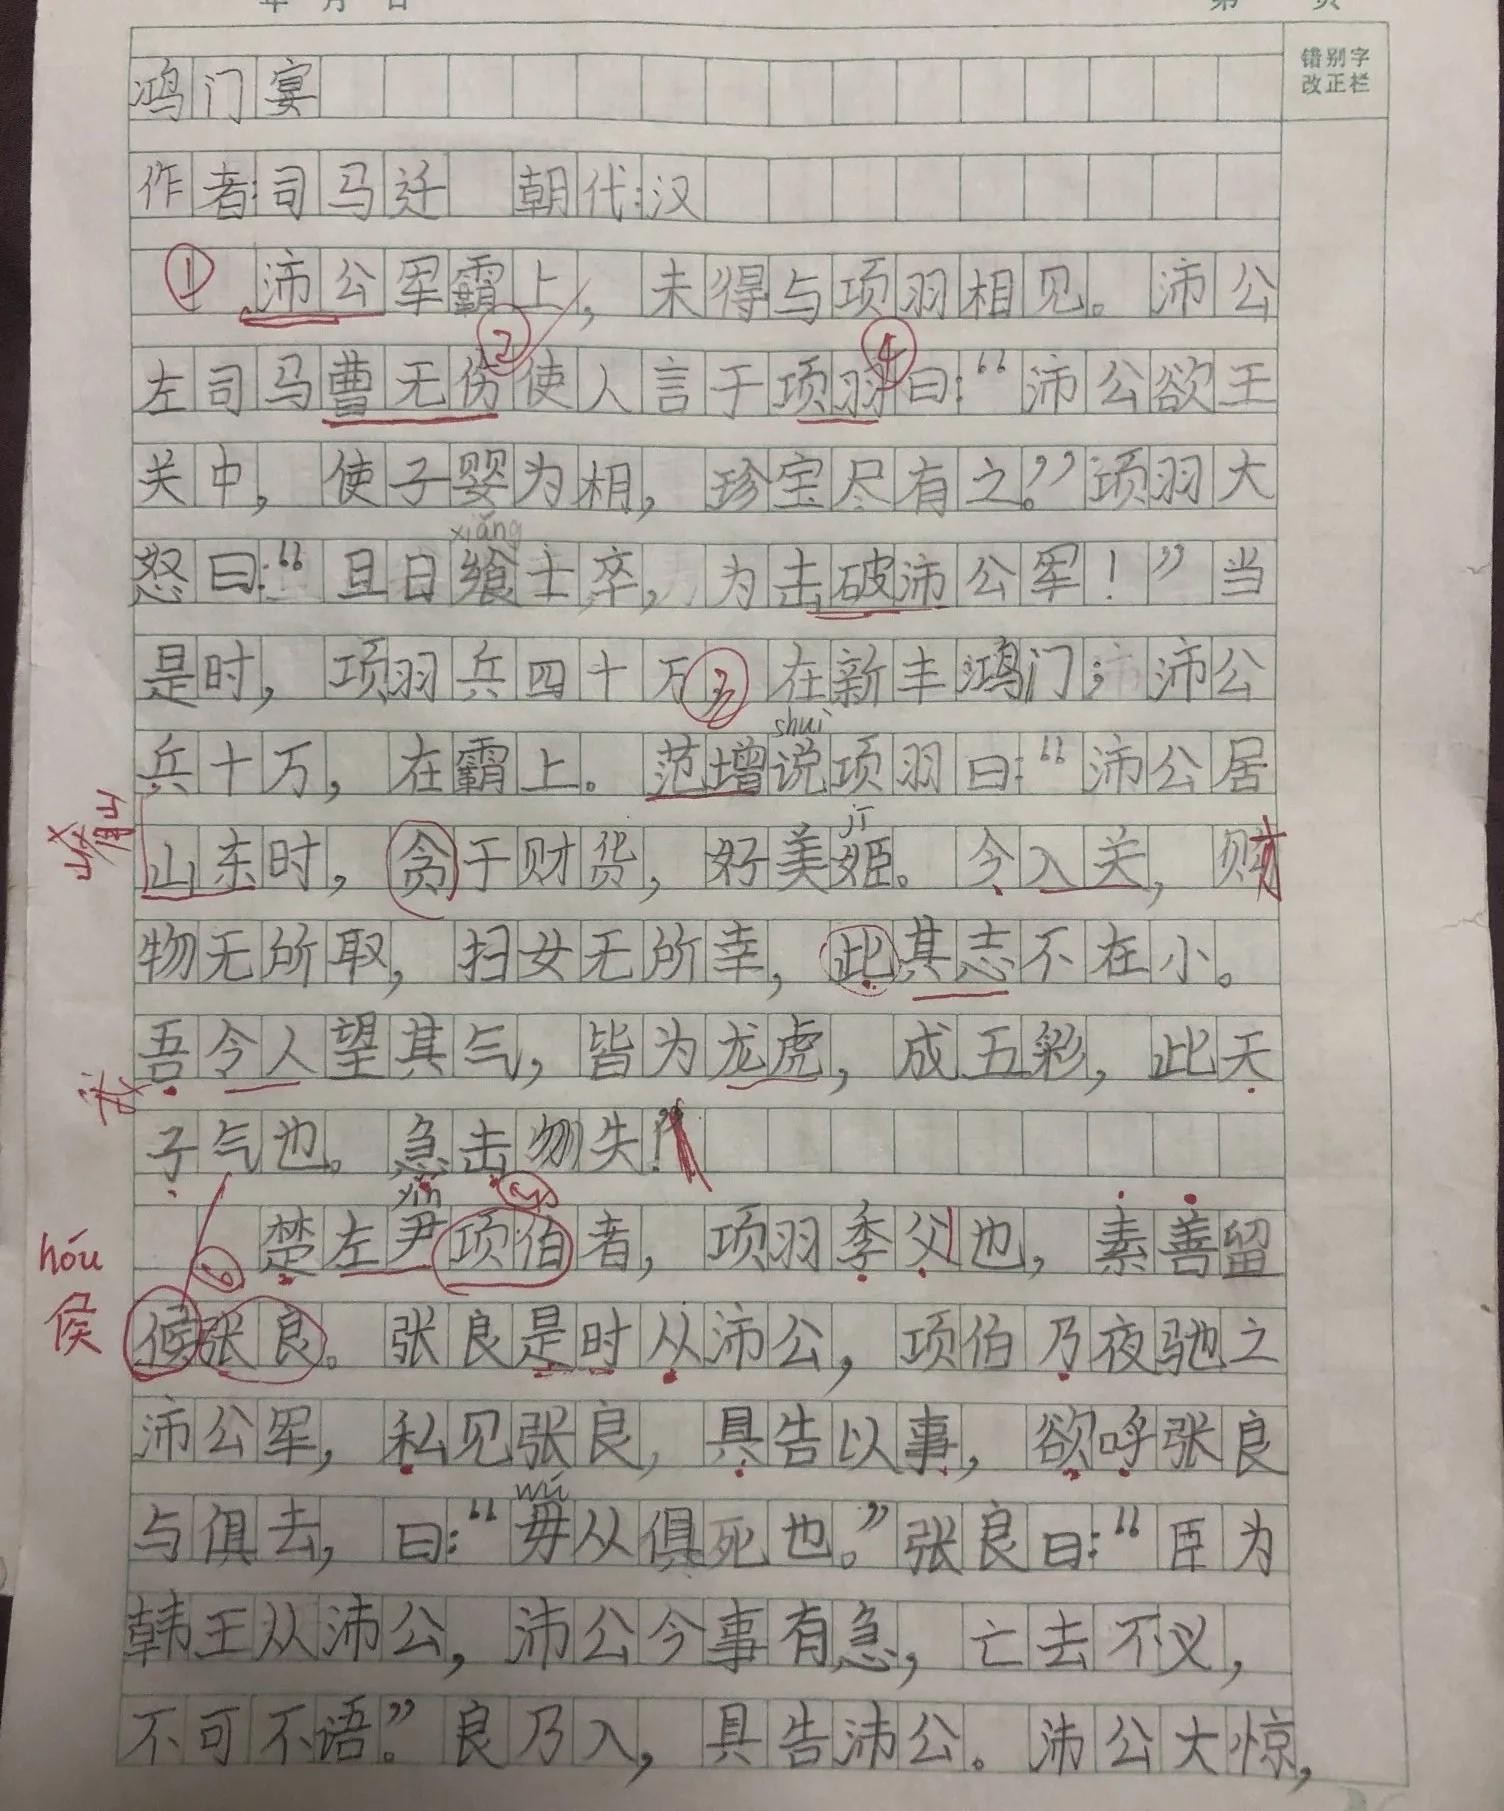 年 月 日 第 页
错别字
改正栏
鸿门宴
作者:司马迁 朝代:汉
① 沛公军霸上，未得与项羽相见。沛公
② ④
左司马曹无伤使人言于项羽曰:“沛公欲王
关中，使子婴为相，珍宝尽有之。”项羽大
xiǎng
怒曰:“旦日飨士卒，为击破沛公军！”当
是时，项羽兵四十万，③在新丰鸿门；沛公
shuì
兵十万，在霸上。范增说项羽曰:“沛公居
崤山
jī
山东时，贪于财货，好美姬。今入关，财
物无所取，妇女无所幸，此其志不在小。
吾令人望其气，皆为龙虎，成五彩，此天
我
子气也。急击勿失！”
yǐn ⑤
楚左尹项伯者，项羽季父也，素善留
hóu
侯
⑥
候张良。张良是时从沛公，项伯乃夜驰之
沛公军，私见张良，具告以事，欲呼张良
wú
与俱去，曰:“毋从俱死也。”张良曰:“臣为
韩王从沛公，沛公今事有急，亡去不义，
不可不语。”良乃入，具告沛公。沛公大惊，